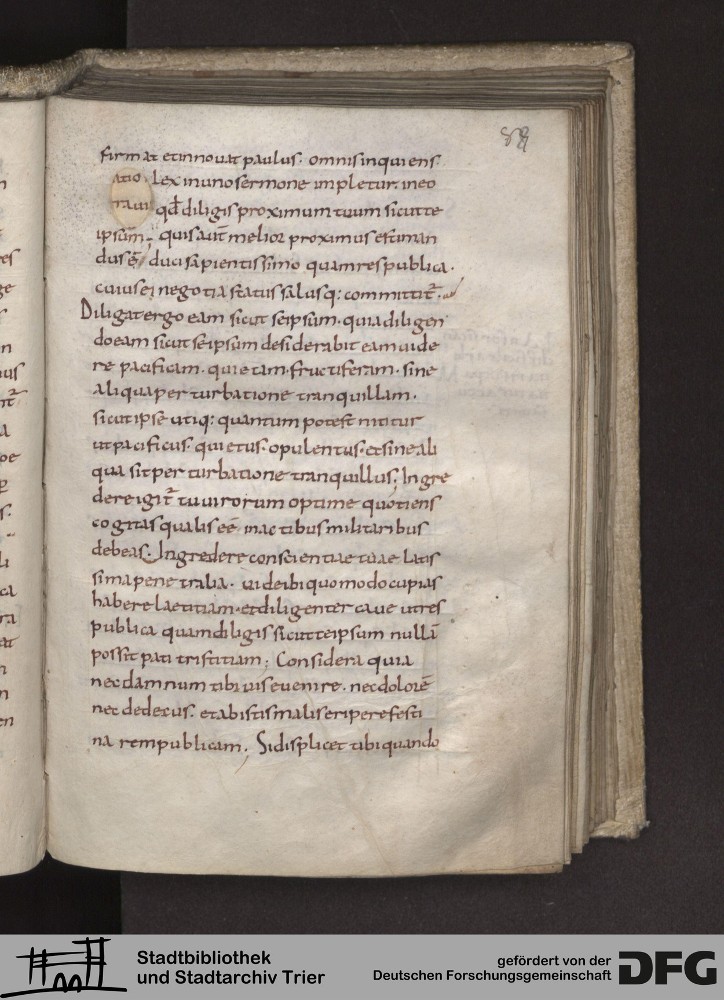 88
firmat et innouat paulus. omnis inquiens
lex in uno sermone impletur. in eo
qđ diligis proximum tuum sicut te
ipsum. quis aut̄ melior proximus estiman
dus ē. duci sapientissimo quam res publica.
cuius ei negotia status salusq: committit̄.
Diligat ergo eam sicut seipsum. quia diligen
do eam sicut seipsum desiderabit eam uide
re pacificam. quietam. fructiferam. sine
aliqua perturbatione tranquillam.
sicut ipse utiq: quantum potest nititur
ut pacificus. quietus. opulentus. et sine ali
qua sit perturbatione tranquillus. Ingre
dere igit̄ tu uirorum optime quotiens
cogitas qualis eē in actibus militaribus
debeas. Ingredere conscientiae tuae latis
sima penetralia. uide ibi quomodo cupias
habere laetitiam. et diligenter caue ut res
publica quam diligis sicut teipsum nullā
possit pati tristitiam; Considera quia
nec damnum tibi uis euenire. nec dolorē
nec dedecus. et ab istis malis eripere festi
na rempublicam. Si displicet tibi quando
Stadtbibliothek
und Stadtarchiv Trier
gefördert von der
Deutschen Forschungsgemeinschaft
DFG